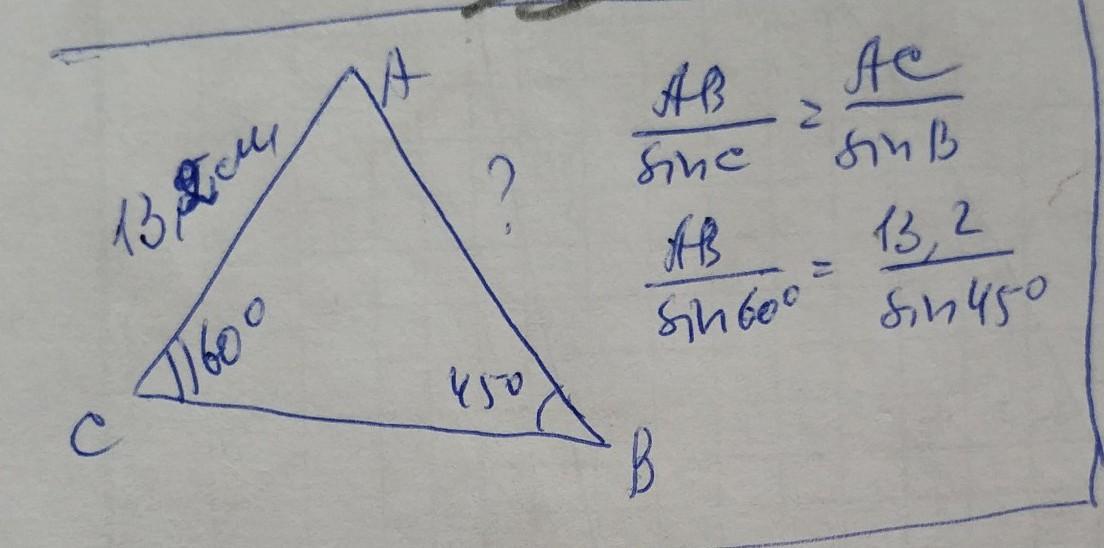 A
13,2 см
?
60°
45°
C
B
AB/sinC = AC/sinB
AB/sin60° = 13,2/sin45°